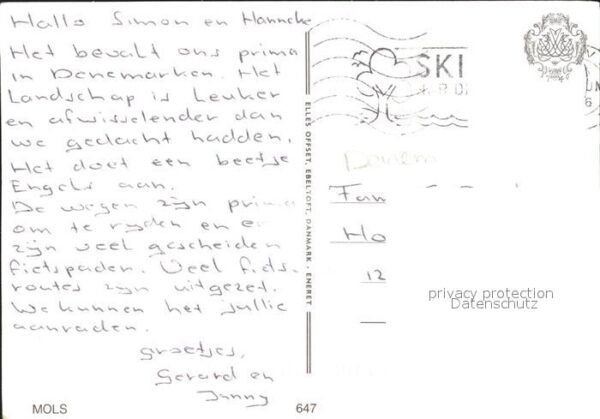 Hallo Simon en Hanneke
Het bevalt ons prima
in Denemarken. Het
Landschap is leuker
en afwisselender dan
we gedacht hadden.
Het doet een beetje
Engels aan.
De wegen zijn prima
om te rijden en er
zijn veel gescheiden
fietspaden. Veel fiets-
routes zijn uitgezet.
We kunnen het jullie
aanraden.
Groetjes,
Gerard en
Janny
MOLS
ELLES OFFSET, EBELTOFT, DANMARK - ENERET
647
SKI
Fam
Ho
12
privacy protection
Datenschutz